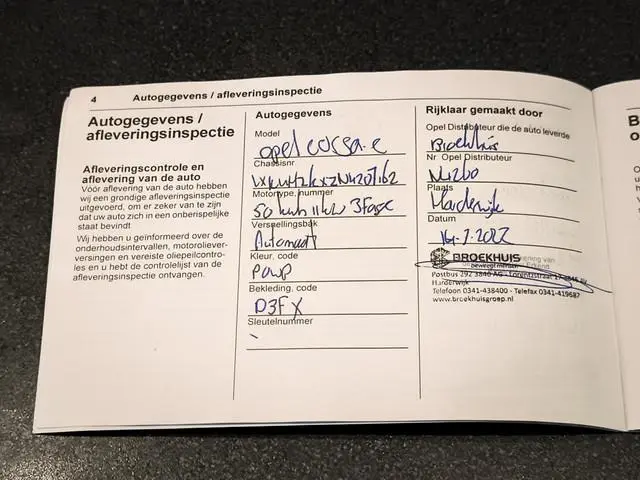 4 Autogegevens / afleveringsinspectie
Autogegevens /
afleveringsinspectie
Afleveringscontrole en
aflevering van de auto
Vóór aflevering van de auto hebben
wij een grondige afleveringsinspectie
uitgevoerd, om er zeker van te zijn
dat uw auto zich in een onberispelijke
staat bevindt
Wij hebben u geïnformeerd over de
onderhoudsintervallen, motoroliever-
versingen en vereiste oliepeilcontro-
les en u hebt de controlelijst van de
afleveringsinspectie ontvangen.
Autogegevens
Model
Opel Corsa-e
Chassisnr
Motortype, nummer
50 kwh 11kw 3Fase
Versnellingsbak
Automaat
Kleur, code
Bekleding, code
D3FX
Sleutelnummer
Rijklaar gemaakt door
Opel Distributeur die de auto leverde
Broekhuis
Nr Opel Distributeur
NL1260
Plaats
Harderwijk
Datum
14-7-2022
BROEKHUIS
beweegt mensen
Postbus 292 3840 AG
Harderwijk
Telefoon 0341-438400 - Telefax 0341-419687
www.broekhuisgroep.nl
B
o